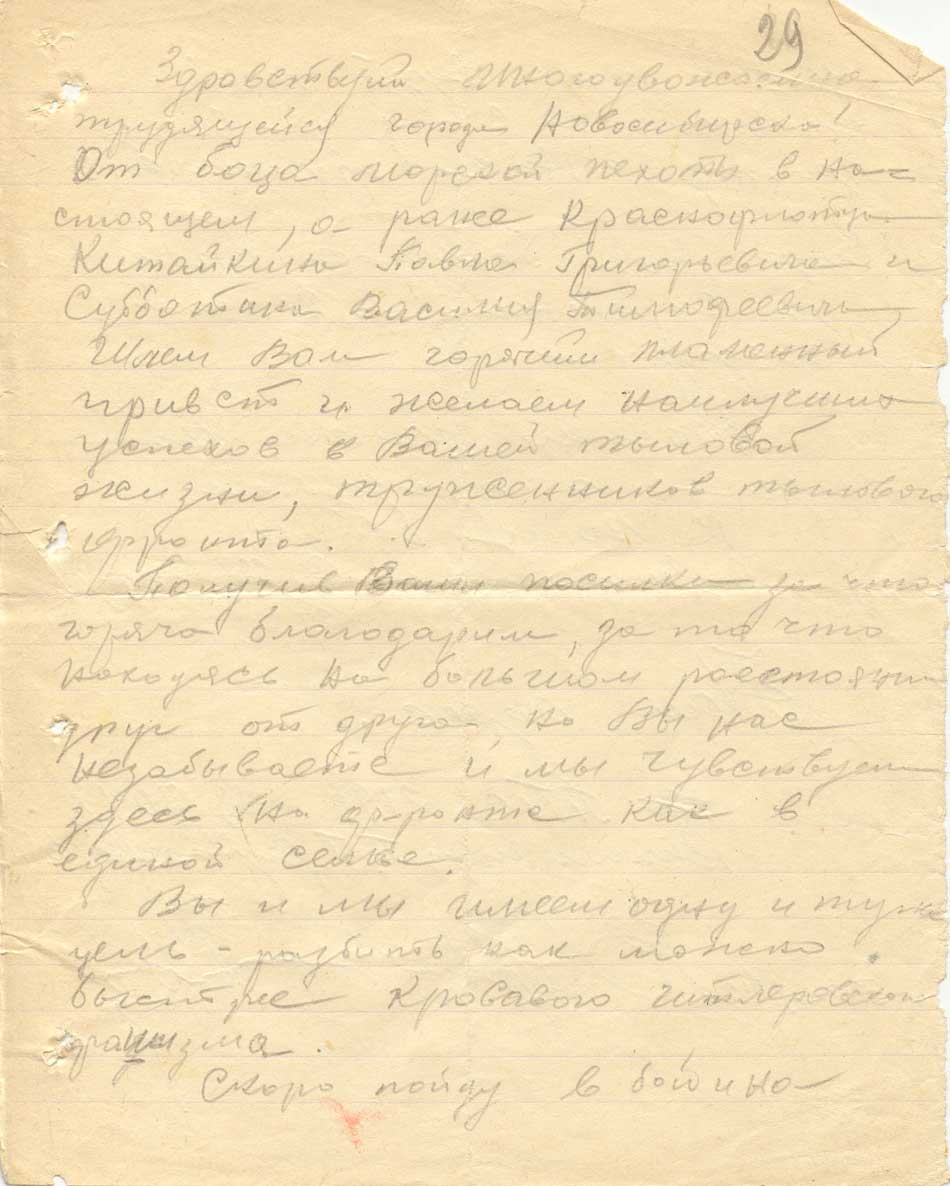 29
Здравствуй многоуважаемые
трудящейся города Новосибирска!
От бойца морской пехоты в на-
стоящем, а ранее Краснофлотца
Китайкина Павла Григорьевича и
Субботина Василия Тимофеевича
Шлем Вам горячий пламенный
привет и желаем наилучших
успехов в Вашей тыловой
жизни, труженников тылового
фронта.
Получив Ваши посылки за что
горячо благодарим, за то что
находясь на большом расстоянии
друг от друга, но Вы нас
незабываете и мы чувствуем
здесь на фронте как в
единой семье.
Вы и мы имеем одну и туже
цель - разбить как можно
быстрее кровавого гитлеровского
фашизма.
Скоро пойду в бой и на